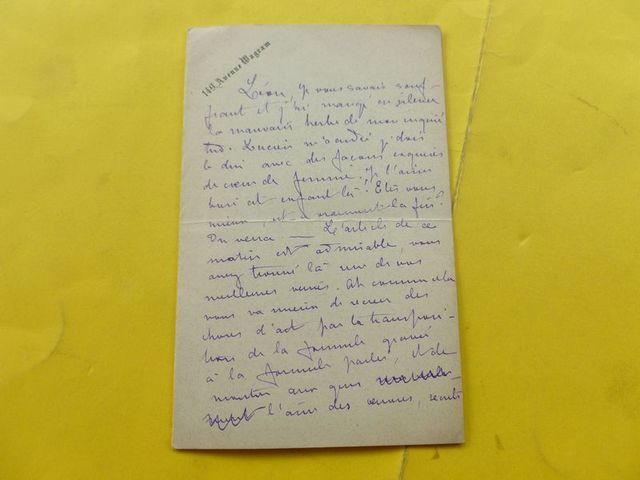 149, Avenue Wagram
Léon, je vous savais souf-
frant et j'ai mangé en silence
la mauvaise herbe de mon inquié
tude. Lucien m'a aidé je dois
le dire avec des façons exquises
de cœur de femme. Je l'aime
aussi cet enfant là! Etes vous
mieux, est-ce vraiment la fin?
On verra — L'article de ce
matin est admirable, vous
avez trouvé là une de vos
meilleures veines. Ah comme cela
vous va mieux de recréer des
choses d'art par la transposi-
tion de la formule gravée
à la formule parlée, et de
montrer aux gens
l'âme des œuvres, écrits